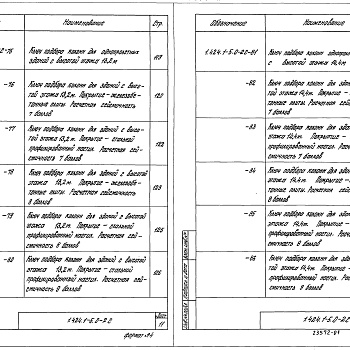 Наименование
Стр.
2-75
Ключ подбора колонн для одноэтажных
зданий с высотой этажа 13,2 м.
-76
Ключ подбора колонн для зданий с высо-
той этажа 13,2 м. Покрытие - железобе-
тонные плиты. Расчетная сейсмичность
7 баллов
-77
Ключ подбора колонн для зданий с высо-
той этажа 13,2 м. Покрытие - стальной
профилированный настил. Расчетная сей-
смичность 7 баллов
122
-78
Ключ подбора колонн для зданий с высотой
этажа 13,2 м. Покрытие - железобе-
тонные плиты. Расчетная сейсмичность
8 баллов
-79
Ключ подбора колонн для зданий с высотой
этажа 13,2 м. Покрытие - стальной
профилированный настил. Расчетная сей-
смичность 8 баллов
-80
Ключ подбора колонн для зданий с высотой
этажа 13,2 м. Покрытие - стальной
профилированный настил. Расчетная сей-
смичность 9 баллов
1.424.1-5.0-22
Лист
11
формат А4
Обозначение
Наименование
1.424.1-5.0-22-81
Ключ подбора колонн
с высотой этажа 14,4 м.
-82
Ключ подбора колонн для
той этажа 14,4 м.
тонные плиты. Расчетная
7 баллов
-83
Ключ подбора колонн для
этажа 14,4 м. Покрытие -
профилированный настил.
смичность 7 баллов
-84
Ключ подбора колонн для
этажа 14,4 м. Покрытие -
тонные плиты. Расчетная
8 баллов
-85
Ключ подбора колонн для
этажа 14,4 м. Покрытие -
профилированный настил.
смичность 8 баллов
-86
Ключ подбора колонн для
этажа 14,4 м. Покрытие -
профилированный настил.
смичность 9 баллов
1.424.1-5.0-22
23592-01